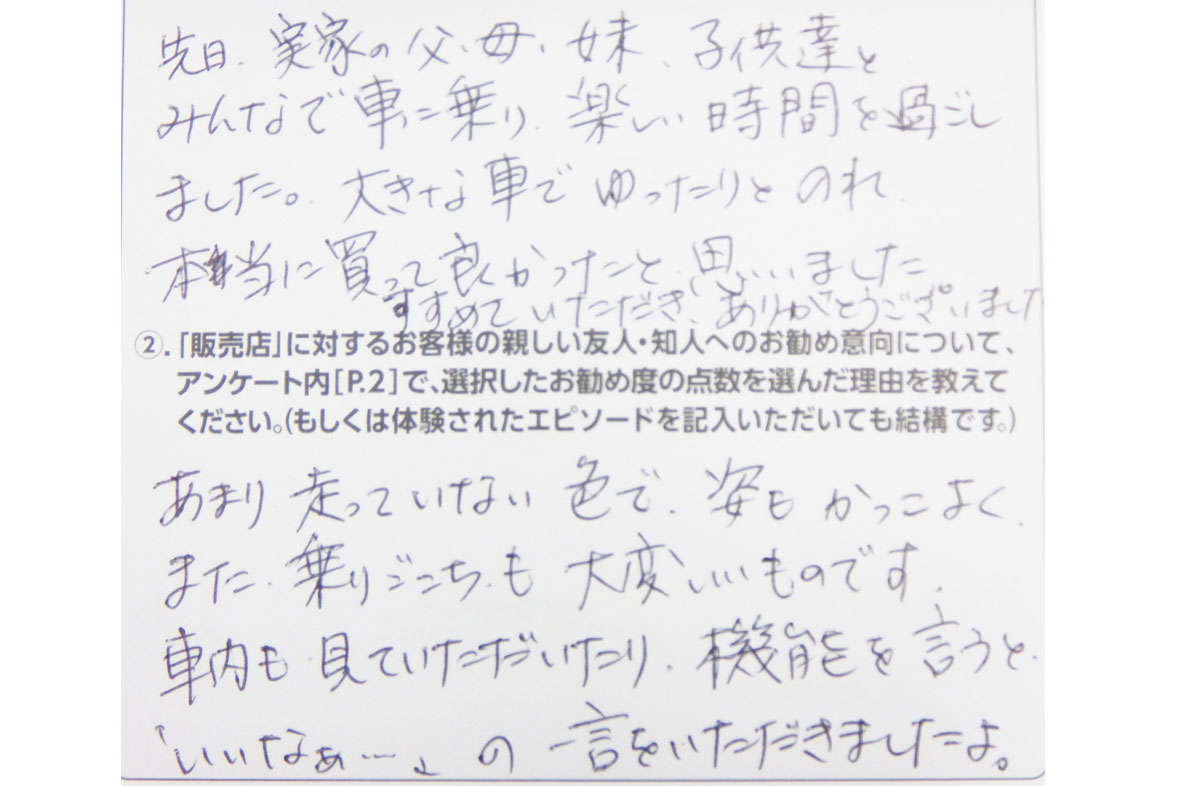 先日、実家の父、母、妹、子供達と
みんなで車に乗り、楽しい時間を過ごし
ました。大きな車でゆったりとのれ、
本当に買って良かったと思いました。
すすめていただき、ありがとうございました
②.「販売店」に対するお客様の親しい友人・知人へのお勧め意向について、
アンケート内[P.2]で、選択したお勧め度の点数を選んだ理由を教えて
ください。(もしくは体験されたエピソードを記入いただいても結構です。)
あまり走っていない色で、姿もかっこよく、
また、乗りごこちも大変いいものです。
車内も見ていただいたり、機能を言うと、
「いいなぁ…」の一言をいただきましたよ。